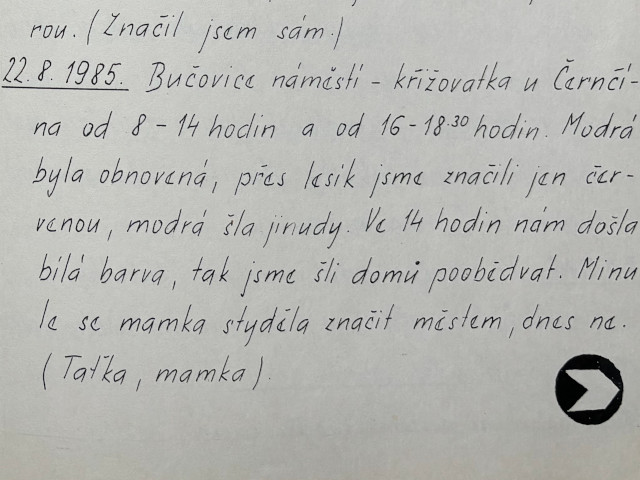 rou. (Značil jsem sám.)
22.8.1985. Bučovice náměstí - křižovatka u Černčí-
na od 8 - 14 hodin a od 16 - 18.30 hodin. Modrá
byla obnovená, přes lesík jsme značili jen čer-
venou, modrá šla jinudy. Ve 14 hodin nám došla
bílá barva, tak jsme šli domů poobědvat. Minu
le se mamka styděla značit městem, dnes ne.
(Taťka, mamka).